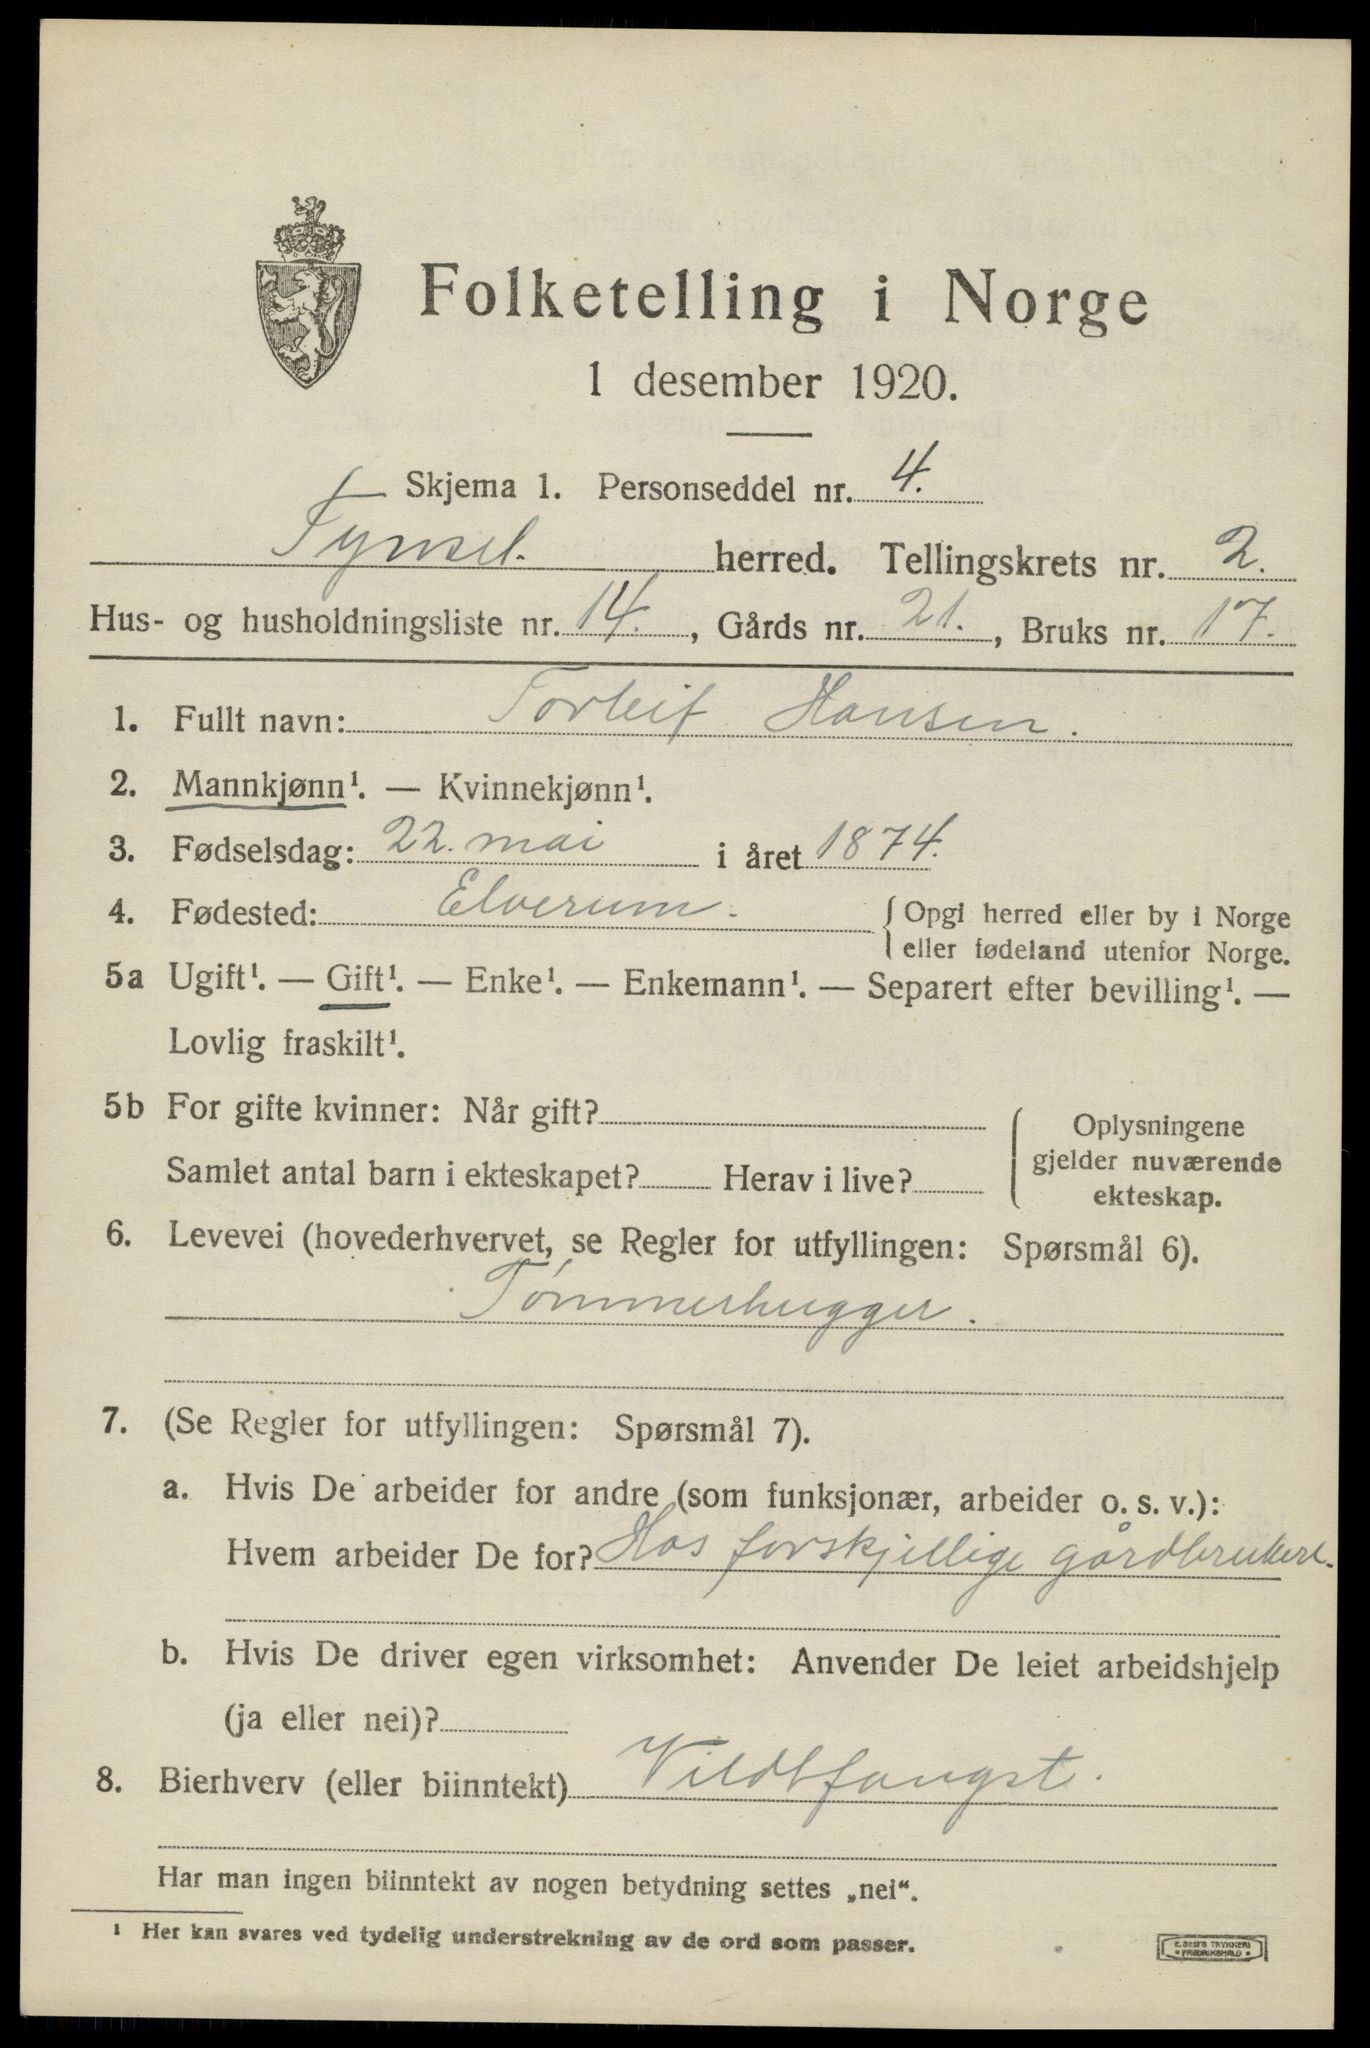 Folketelling i Norge
1 desember 1920.
Skjema 1. Personseddel nr. 4.
Tynset. herred. Tellingskrets nr. 2.
Hus- og husholdningsliste nr. 14., Gårds nr. 21., Bruks nr. 17.
1. Fullt navn: Torleif Hansen.
2. Mannkjønn¹. — Kvinnekjønn¹.
3. Fødselsdag: 22. mai i året 1874.
4. Fødested: Elverum. { Opgi herred eller by i Norge
eller fødeland utenfor Norge.
5a Ugift¹. — Gift¹. — Enke¹. — Enkemann¹. — Separert efter bevilling¹. —
Lovlig fraskilt¹.
5b For gifte kvinner: Når gift?
Samlet antal barn i ekteskapet? Herav i live?
Oplysningene
gjelder nuværende
ekteskap.
6. Levevei (hovederhvervet, se Regler for utfyllingen: Spørsmål 6).
Tømmerhugger.
7. (Se Regler for utfyllingen: Spørsmål 7).
a. Hvis De arbeider for andre (som funksjonær, arbeider o. s. v.):
Hvem arbeider De for? Hos forskjellige gårdbrukere.
b. Hvis De driver egen virksomhet: Anvender De leiet arbeidshjelp
(ja eller nei)?
8. Bierhverv (eller biinntekt) Vildtfangst.
Har man ingen biinntekt av nogen betydning settes „nei“.
¹ Her kan svares ved tydelig understrekning av de ord som passer.
E. SEM'S TRYKKERI
FREDRIKSHALD